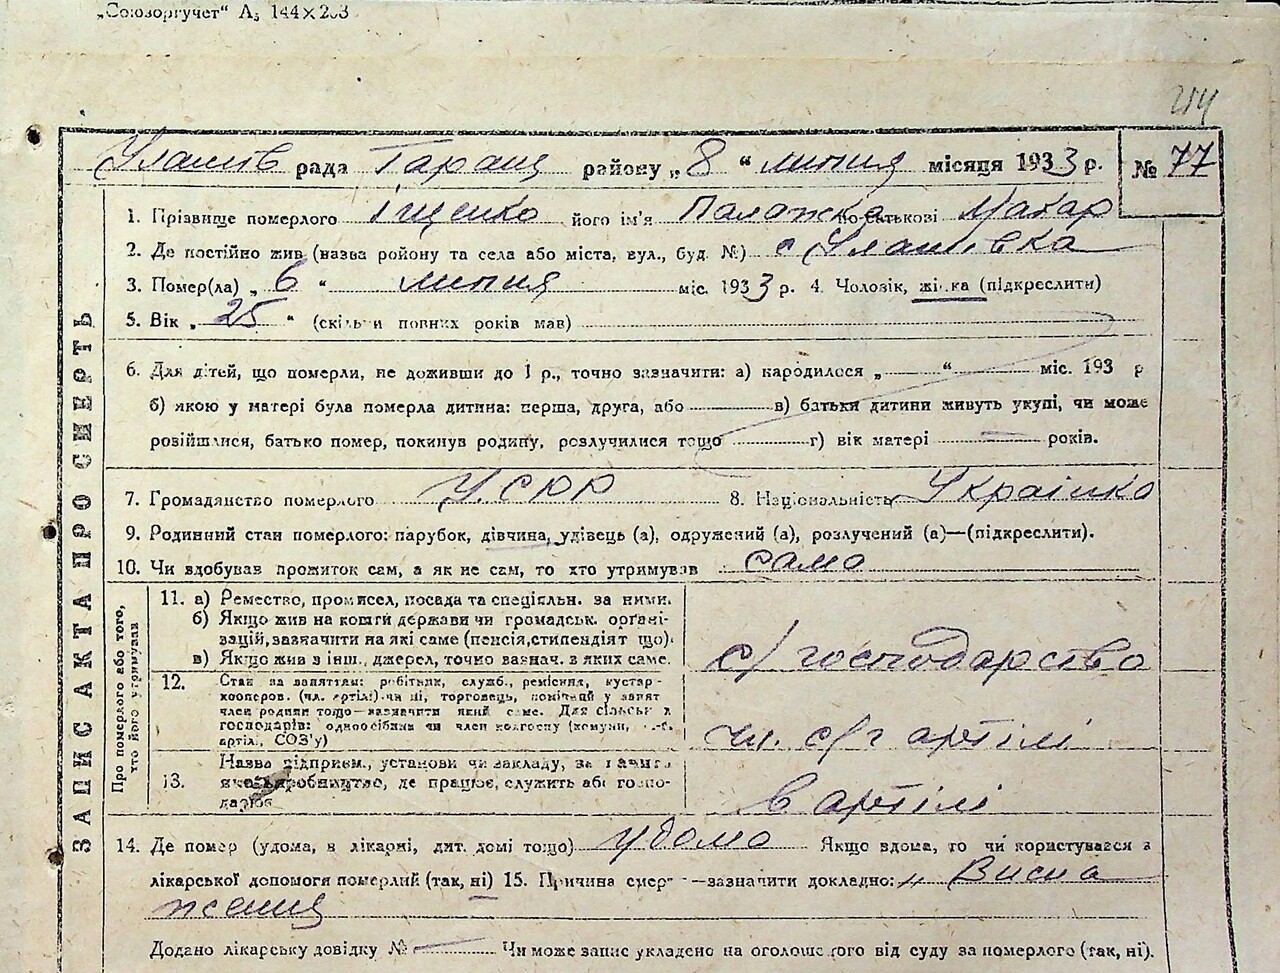 „Союзоргучет“ А₅ 144×203
214
рада Таращ району „8“ липня місяця 1933 р. № 77
1. Прізвище померлого Іщенко його ім'я Палажка по-батькові Макар
2. Де постійно жив (назва ройону та села або міста, вул., буд. №) с Улашівка
3. Помер(ла) „6“ липня міс. 1933 р. 4. Чоловік, жінка (підкреслити)
5. Вік „25“ (скільки повних років мав)
6. Для дітей, що померли, не доживши до 1 р., точно зазначити: а) народилося „ “ міс. 193 р
б) якою у матері була померла дитина: перша, друга, або в) батьки дитини живуть укупі, чи може
розійшлися, батько помер, покинув родину, розлучилися тощо г) вік матері — років.
7. Громадянство померлого УСРР 8. Національність Українка
9. Родинний стан померлого: парубок, дівчина, удівець (а), одружений (а), розлучений (а)—(підкреслити).
10. Чи здобував прожиток сам, а як не сам, то хто утримував сама
ЗАПИС АКТА ПРО СМЕРТЬ
Про померлого або того, хто його утримував
11. а) Ремество, промисел, посада та спеціяльн. за ними.
б) Якщо жив на кошти держави чи громадськ. органі-
зацій, зазначити на які саме (пенсія, стипендіят що)
в) Якщо жив з інш. джерел, точно зазнач. з яких саме.
с/господарство
12. Стан за заняттям: робітник, служб., ремісник, кустар-
кооперов. (чл. артілі) чи ні, торговець, помічний у занят
член родини тощо—зазначити який саме. Для сільськ
господарів: одноосібник чи член колгоспу (комуни,
артіл., СОЗ'у)
чл. с/г артілі
13. Назва підприєм., установи чи закладу, за
виробництво, де працює, служить або госпо-
дарює
в артілі
14. Де помер (удома, в лікарні, дит. домі тощо) удома Якщо вдома, то чи користувався з
лікарської допомоги померлий (так, ні) 15. Причина смерт —зазначити докладно: „ Висна
ження
Додано лікарську довідку № — Чи може запис укладено на оголошеного від суду за померлого (так, ні).